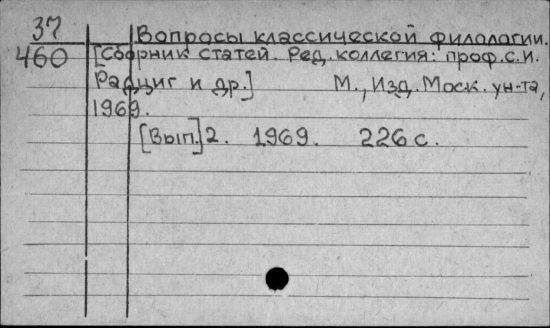 37
460
Вопросы классической филологии.
[Сборник статей. Ред. коллегия: проф. С.И.
Радциг и др.] М., Изд. Моск. ун-та,
1969.
[Вып.] 2. 1969. 226 с.